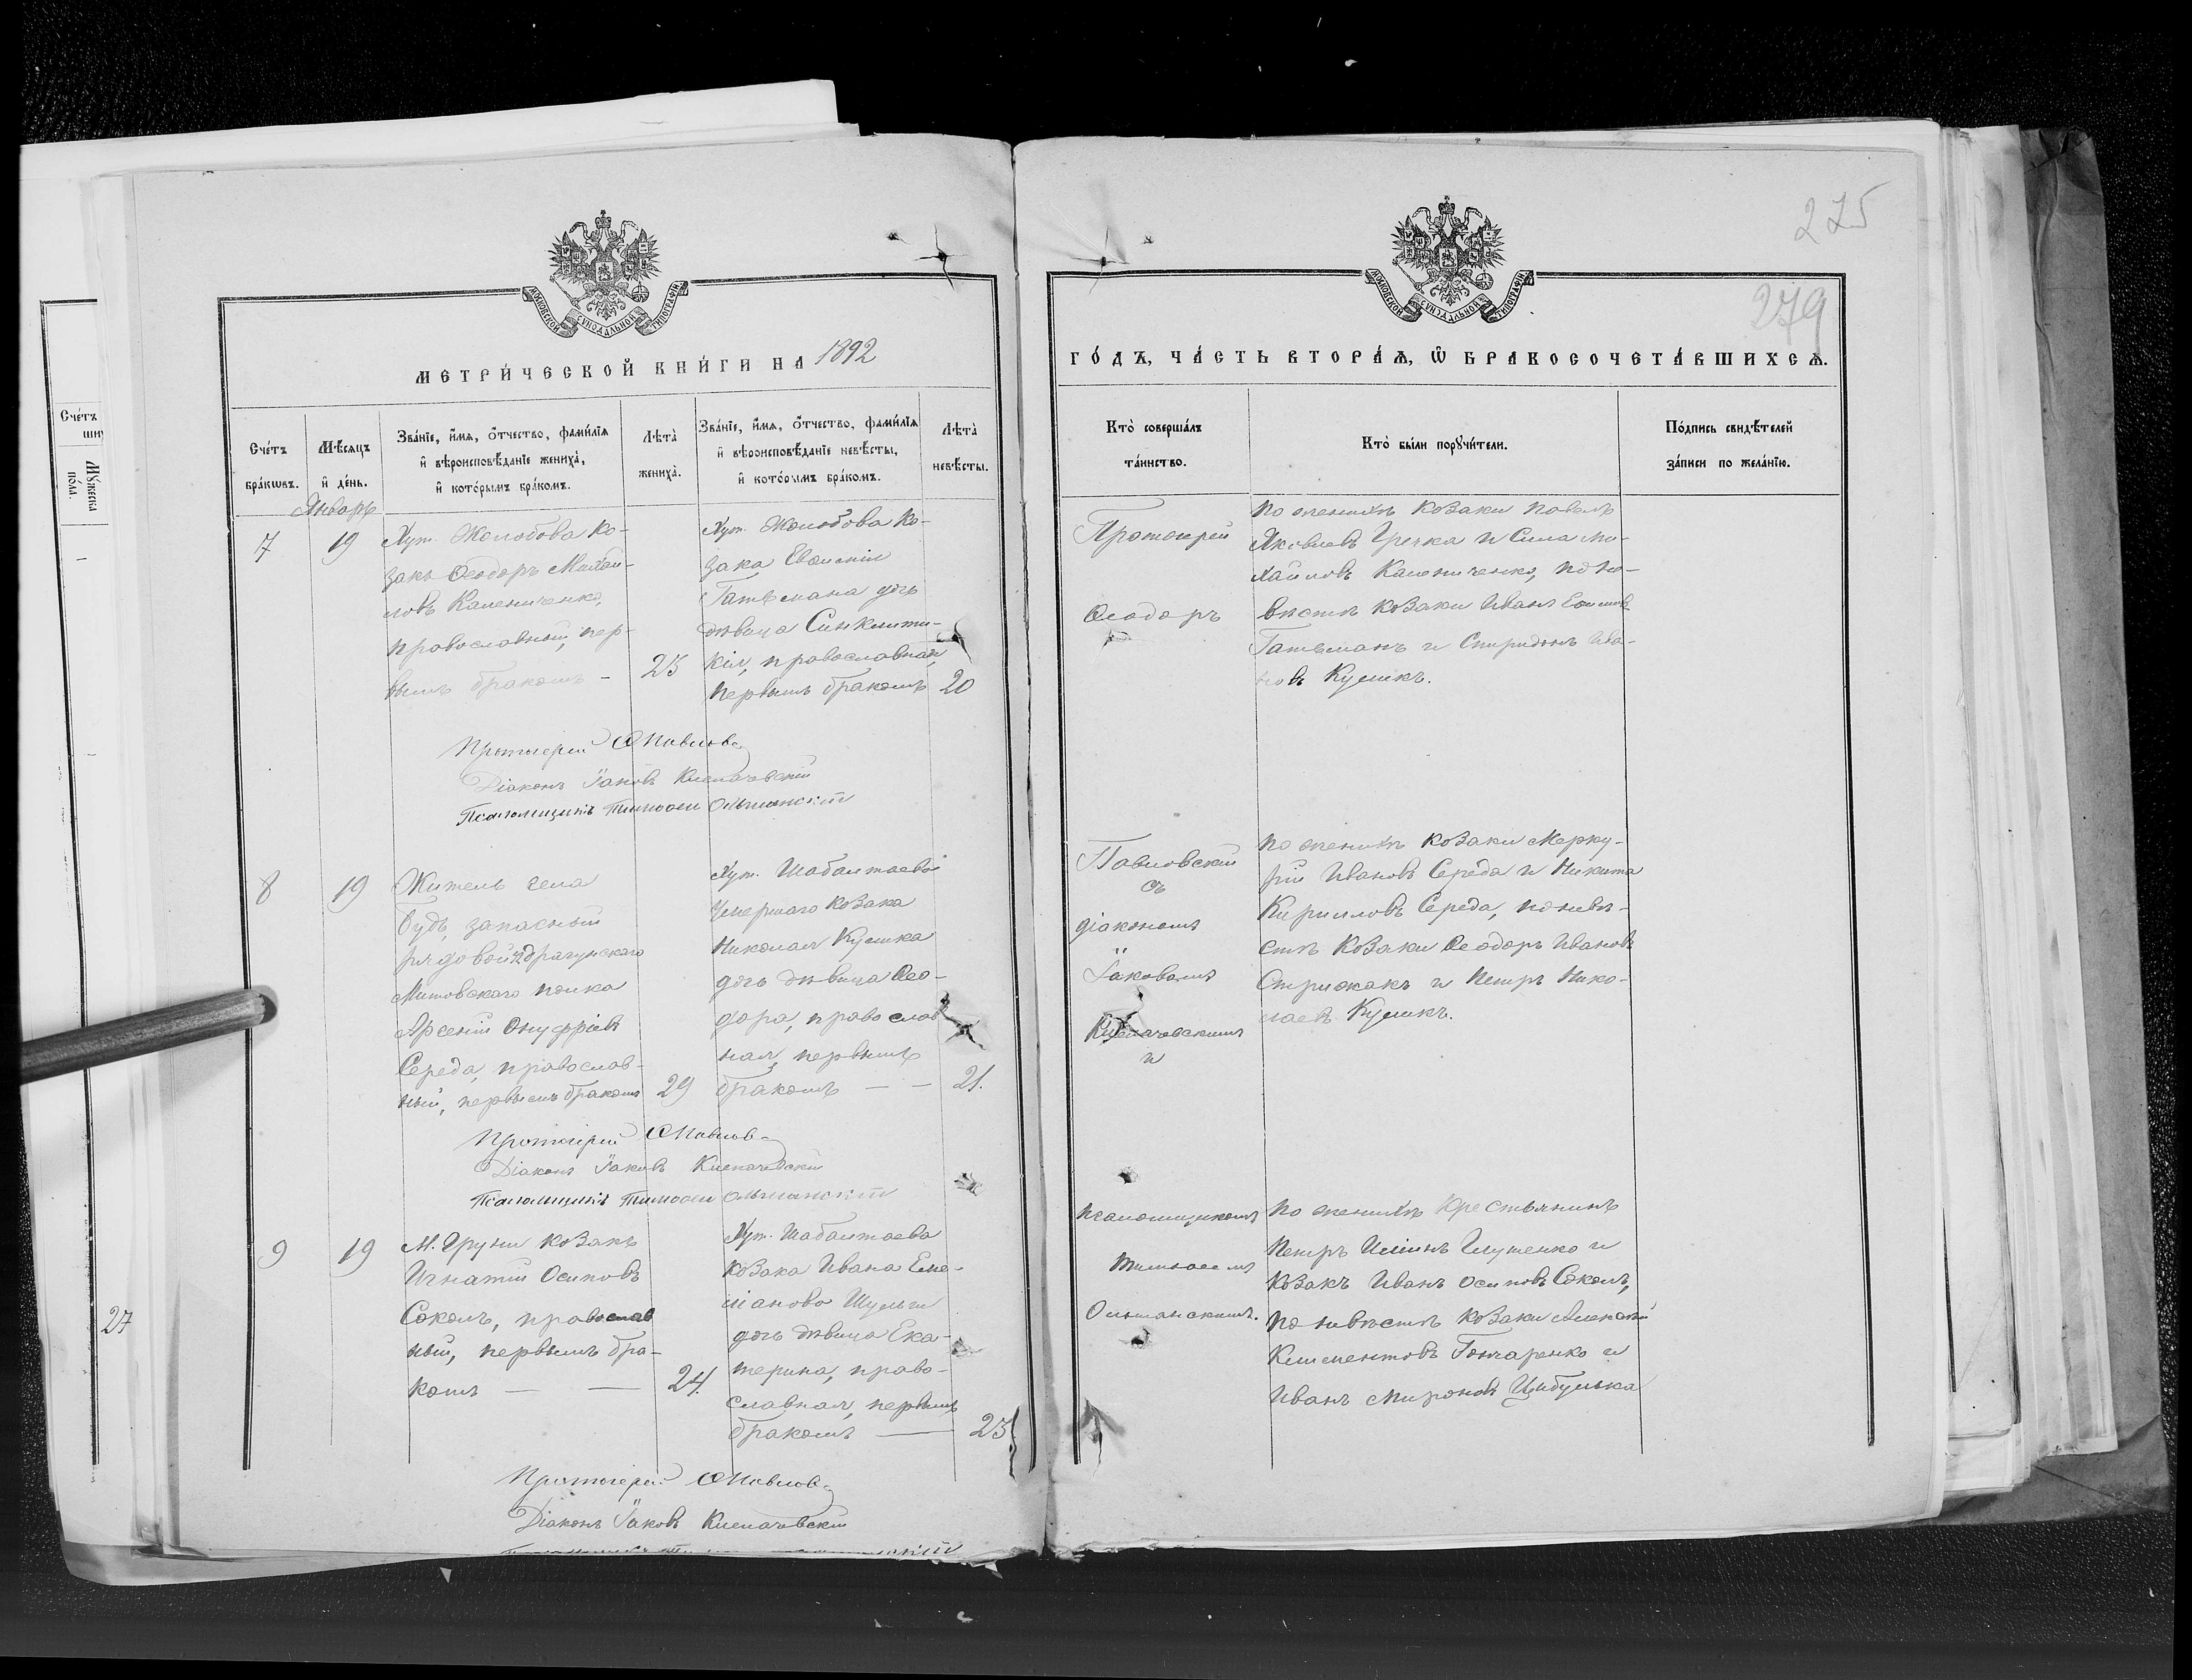 275
279
МОСКОВСКОЙ СѴНОДАЛЬНОЙ ТИПОГРАФІИ
МОСКОВСКОЙ СѴНОДАЛЬНОЙ ТИПОГРАФІИ
МЕТРИ́ЧЕСКОЙ КНИ́ГИ НА 1892
ГО́ДЪ, ЧА́СТЬ ВТОРА́Ѧ, Ѡ БРАКОСОЧЕТА́ВШИХСѦ.
Сче́тъ
бра́кѡвъ.
Мѣ́сѧцъ
и҆ де́нь.
Зва́нїе, и҆́мѧ, ѻ҆́тчество, фами́лїѧ
и҆ вѣроисповѣ́данїе жениха̀,
и҆ кото́рымъ бра́комъ.
Лѣ́та̀
жениха̀.
Зва́нїе, и҆́мѧ, ѻ҆́тчество, фами́лїѧ
и҆ вѣроисповѣ́данїе невѣ́сты,
и҆ кото́рымъ бра́комъ.
Лѣ́та̀
невѣ́сты.
Кто̀ соверша́лъ
та́инство.
Кто̀ бы́ли порꙋчи́тели.
По́дпись свидѣ́телей
за́писи по жела́нїю.
Январь
7
19
Хут. Жолобова ко-
закъ Ѳеодоръ Михаи-
ловъ Калениченко,
православный, пер-
вымъ бракомъ -
25
Хут. Жолобова ко-
зака
Гатьмана дочь
дѣвица Синклити-
кія, православная,
первымъ бракомъ
20
Протоіерей
Ѳеодоръ
По женихѣ козаки Павелъ
Яковлевъ Гречка и Сила Ми-
хайловъ Калениченко, по не-
вѣстѣ козаки Иванъ
Гатьманъ и Спиридонъ Ива-
новъ Куликъ.
Протоіерей Ѳ Павлов
Діаконъ Іаковъ Клепачевскій
Псаломщикъ Тимоѳей Ольшанскій
8
19
Житель села
Будъ, запасный
рядовой драгунскаго
Митовскаго полка
Арсеній Онуфріевъ
Середа, православ-
ный, первымъ бракомъ
29
Хут. Шабалтаевой
умершаго козака
Николая Кулика
дочь дѣвица Ѳео-
дора, православ
ная, первымъ
бракомъ — —
21.
Павловскій
съ
діакономъ
Іаковомъ
Клепачевскимъ
и
По женихѣ козаки Мерку-
рій Ивановъ Середа и Никита
Кирилловъ Середа, по невѣ-
стѣ козаки Ѳеодоръ Ивановъ
Стрижакъ и Петръ Нико-
лаевъ Куликъ.
Протоіерей Ѳ Павлов
Діаконъ Іаковъ Клепачевскій
Псаломщикъ Тимоѳей Ольшанскій
9
19
М. Груни козакъ
Игнатій Осиповъ
Соколъ, православ
ный, первымъ бра-
комъ — —
24.
Хут. Шабалтаева
козака Ивана Еме-
ліанова Шульги
дочь дѣвица Ека-
терина, право-
славная, первымъ
бракомъ —
23
псаломщикомъ
Тимоѳеемъ
Ольшанскимъ.
По женихѣ крестьянинъ
Петръ Глущенко и
козакъ Иванъ Осиповъ Соколъ,
по невѣстѣ козаки Алексѣй
Климентовъ Гончаренко и
Иванъ Мироновъ Цыбулька
Протоіерей Ѳ Павлов
Діаконъ Іаковъ Клепачевскій
Счéтъ
Мꙋ́жеска
по́лꙋ.
27